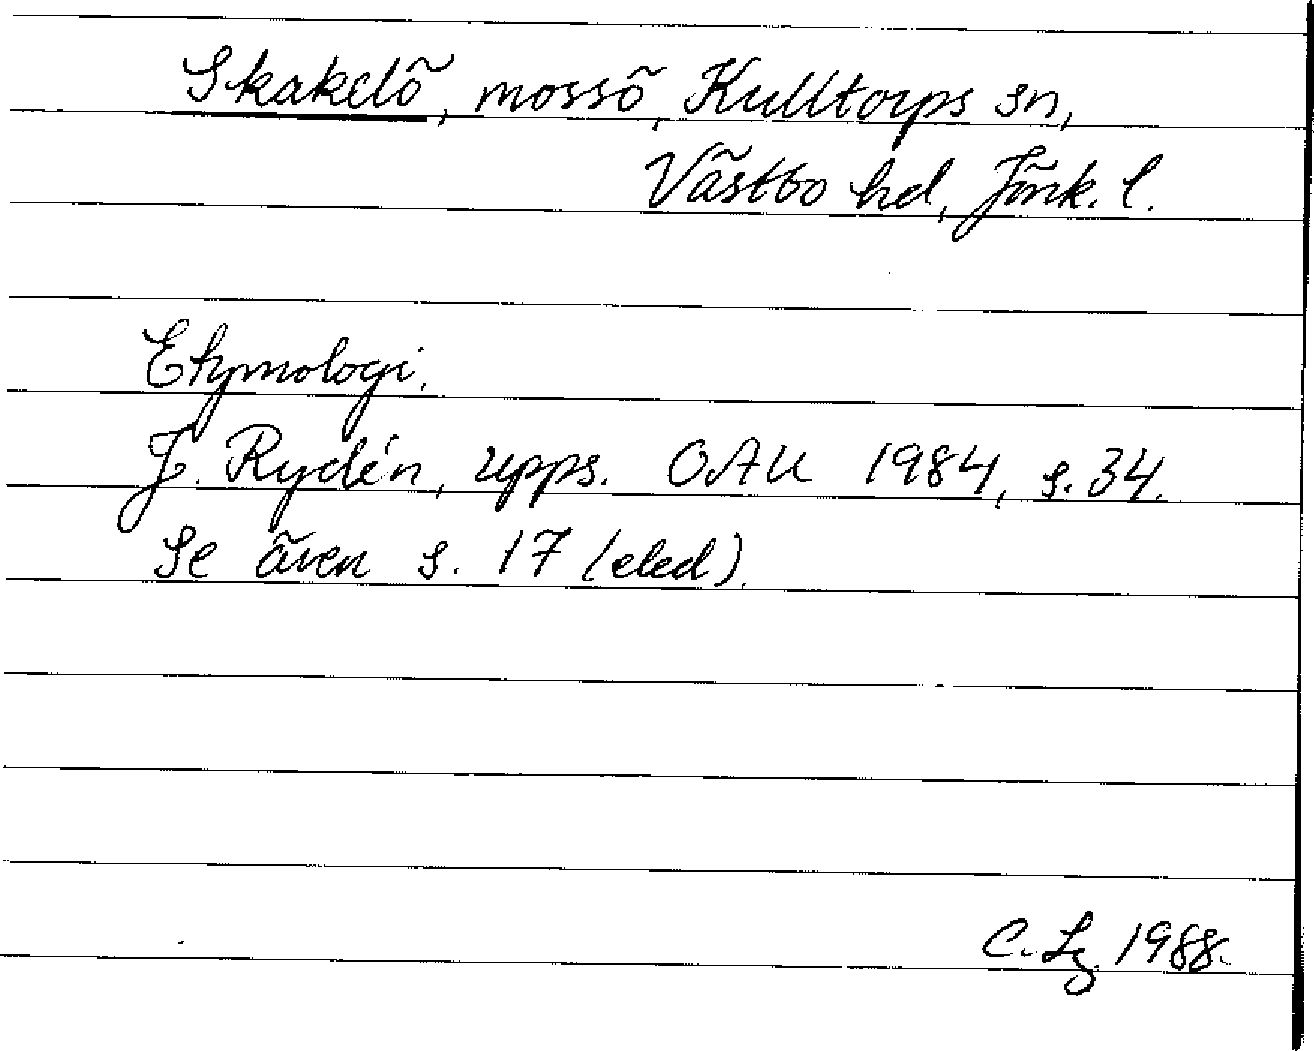 Skakelö, mossö, Kulltorps sn,
Västbo hd, Jönk. l.
Etymologi.
J. Rydén, upps. OAU 1984, s. 34.
Se även s. 17 (eled).
C. Lg. 1988.